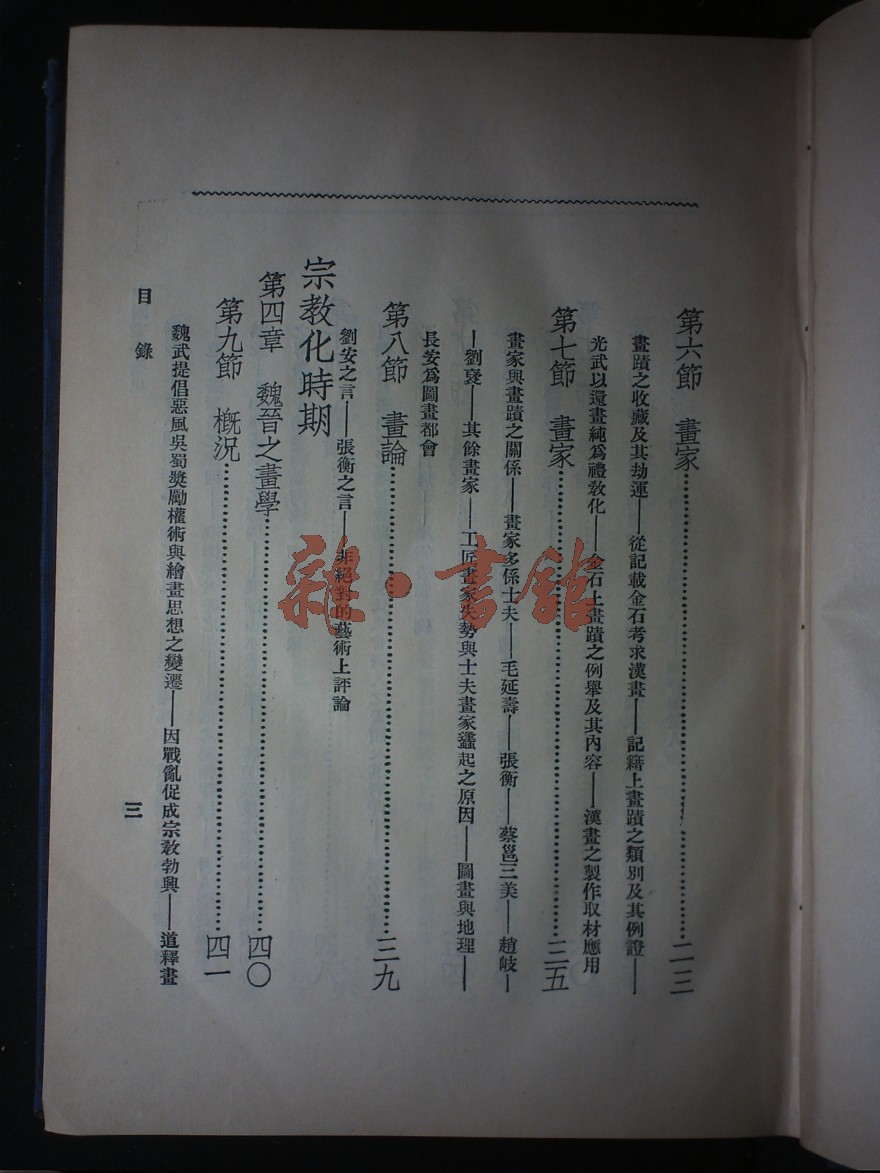 第六節　畫家……………………二三
畫蹟之收藏及其劫運——從記載金石考求漢畫——記籍上畫蹟之類別及其例證——
光武以還畫純爲禮敎化——金石上畫蹟之例舉及其內容——漢畫之製作取材應用
第七節　畫家……………………三五
畫家與畫蹟之關係——畫家多係士夫——毛延壽——張衡——蔡邕三美——趙岐—
—劉褎——其餘畫家——工匠畫家失勢與士夫畫家蠭起之原因——圖畫與地理——
長安爲圖畫都會
第八節　畫論……………………三九
劉安之言——張衡之言——非絕對的藝術上評論
宗教化時期
第四章　魏晉之畫學……………………四〇
第九節　概況……………………四一
魏武提倡惡風吳蜀獎勵權術與繪畫思想之變遷——因戰亂促成宗敎勃興——道釋畫
目錄
三
雜·書館